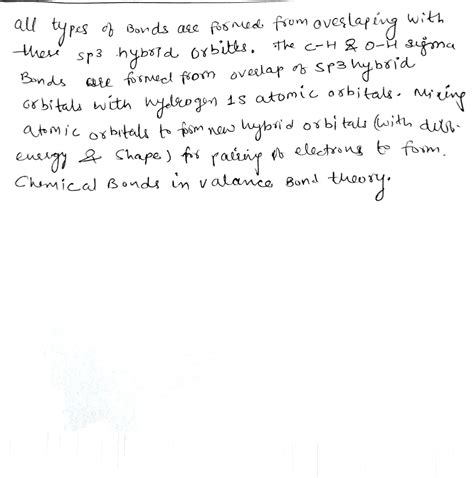 all types of Bonds are formed from overlaping with
there sp3 hybrid orbitls. The C-H & O-H sigma
Bonds are formed from overlap of sp3 hybrid
orbitals with hydrogen 1s atomic orbitals. Mixing
atomic orbitals to form new hybrid orbitals (with diff.
energy & shape) for pairing of electrons to form
Chemical Bonds in valance Bond theory.